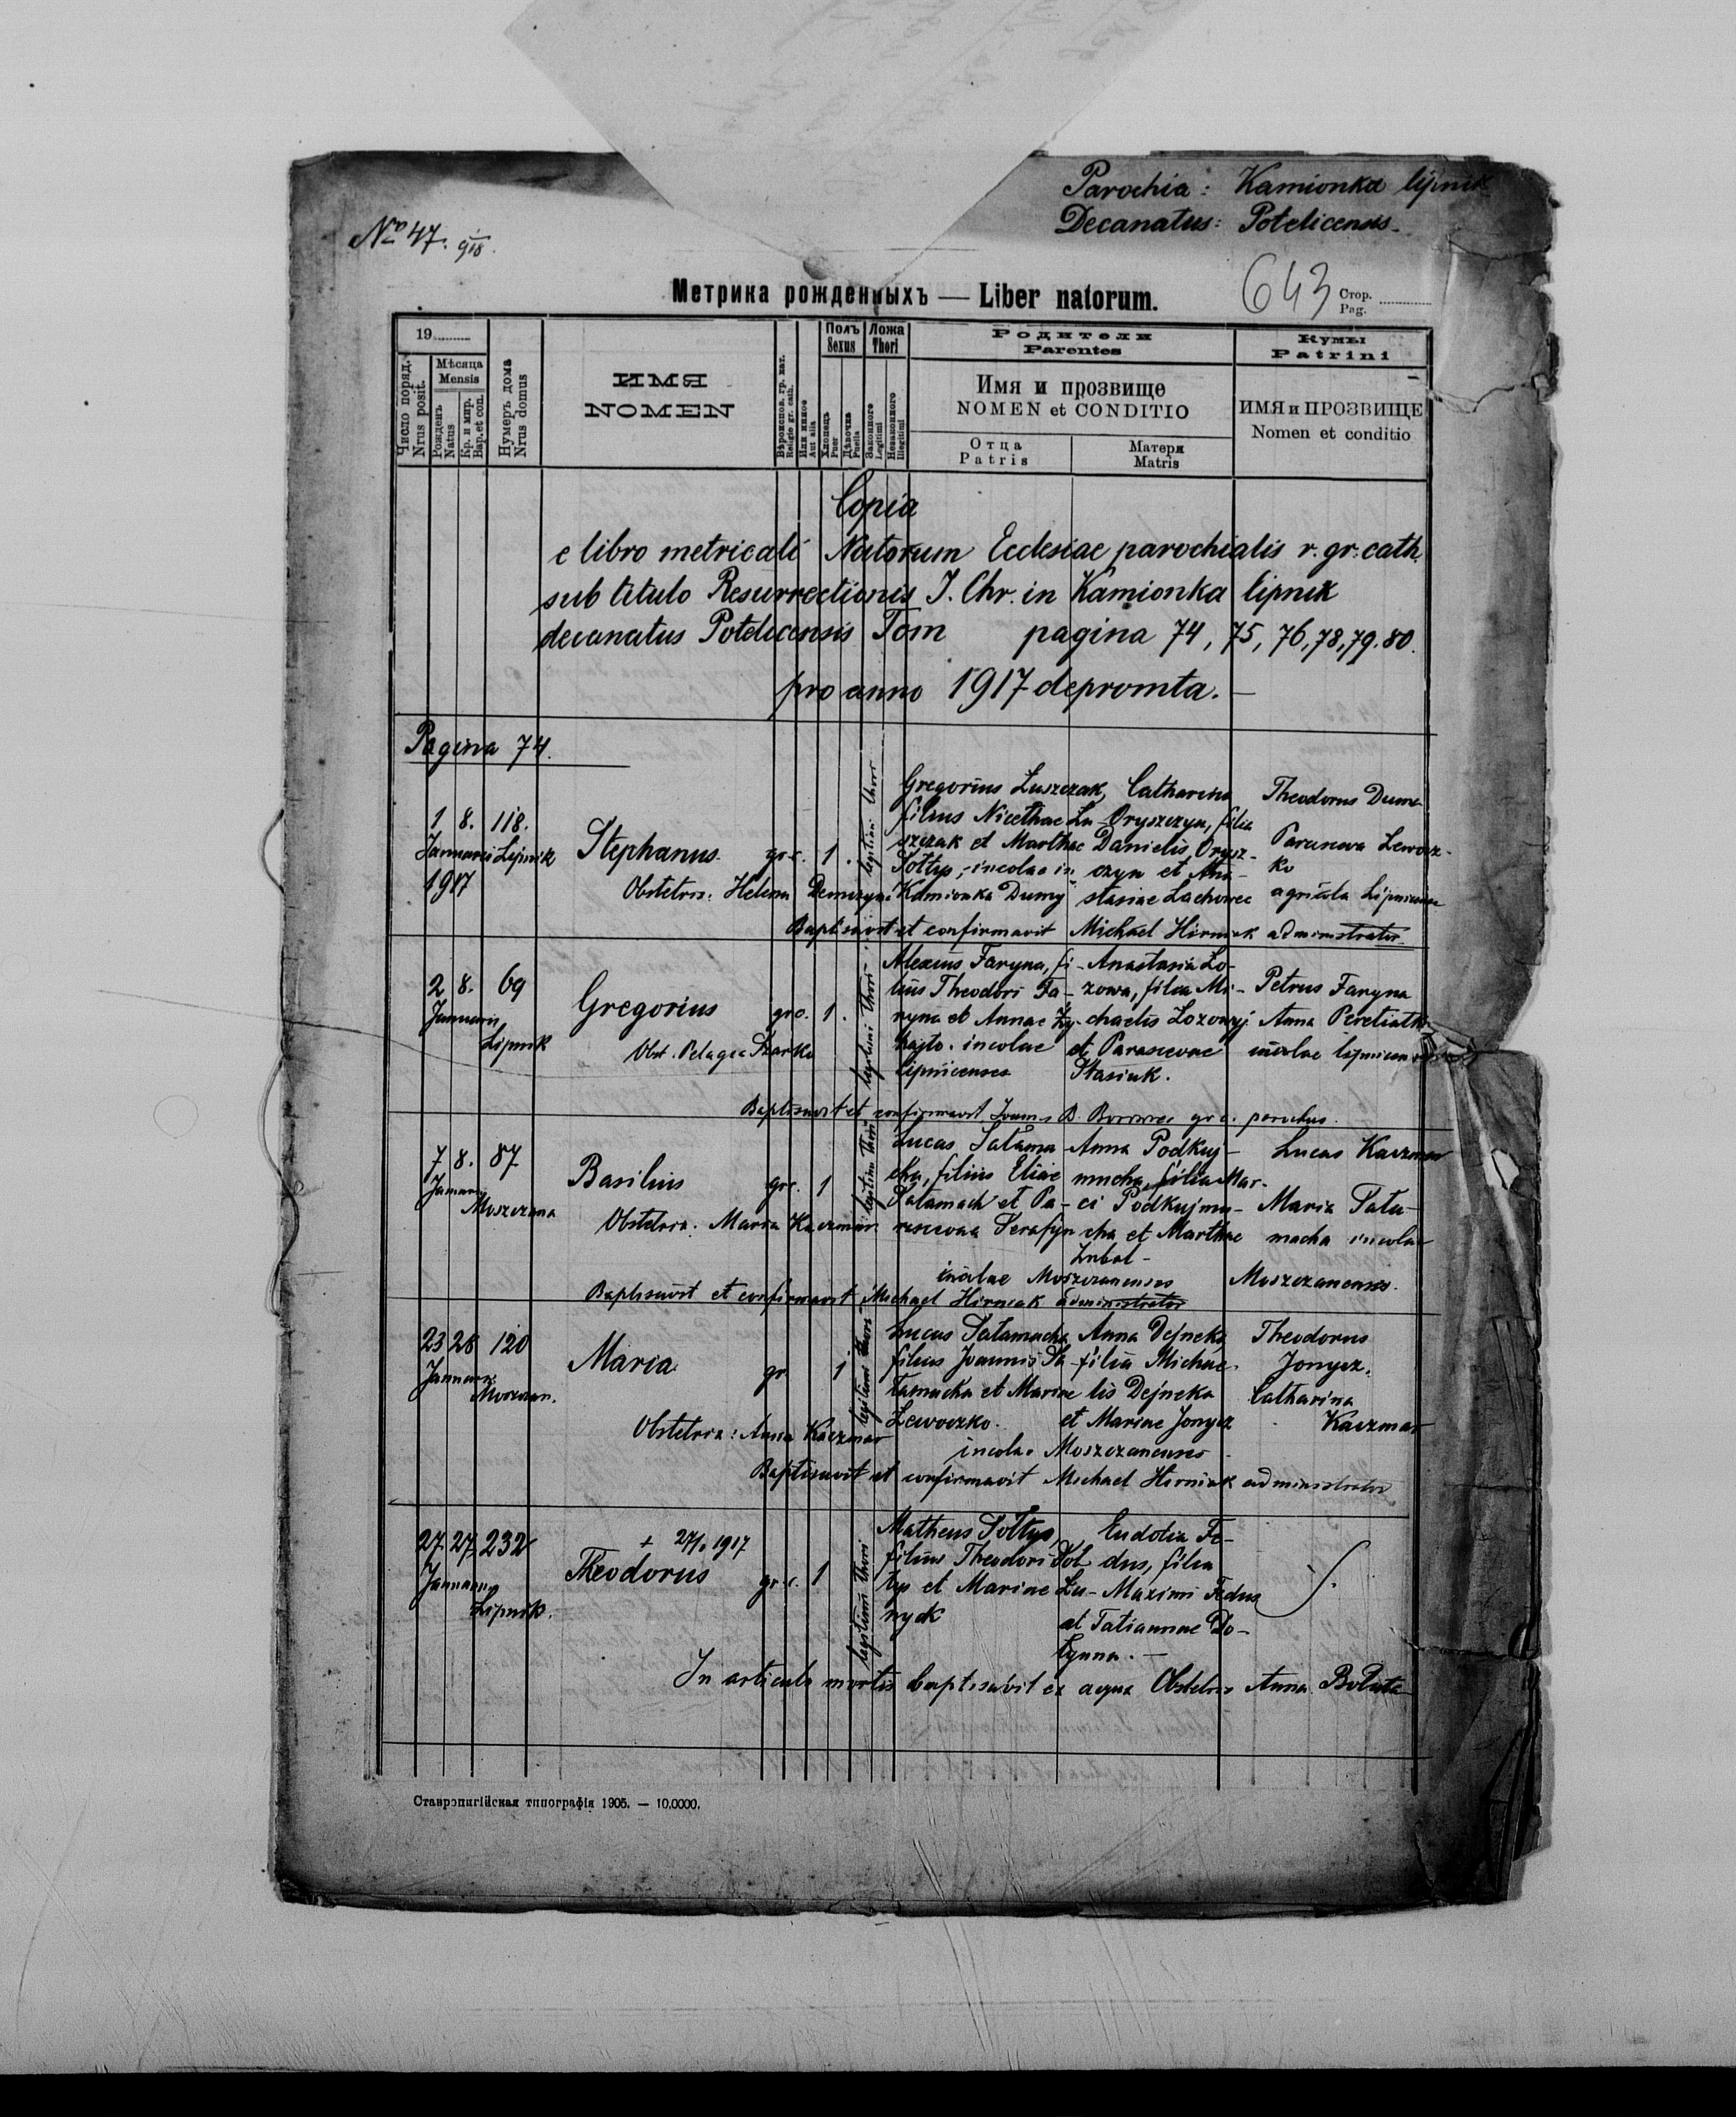 Parochia: Kamionka lipnik
Decanatus: Potelicensis
No 47. 918.
643
Стор.
Pag.
Метрика рожденныхъ — Liber natorum.
19
Число поряд.
Nrus posit.
Мѣсяца
Mensis
Рожденъ
Natus
Кр. и мир.
Bap. et con.
Нумеръ дома
Nrus domus
ИМЯ
NOMEN
Вѣроиспов. гр. кат.
Religio gr. cath.
Или инное
Aut alia
Полъ
Sexus
Хлопецъ
Puer
Дѣвочка
Puella
Ложа
Thori
Законного
Legitimi
Незаконного
Illegitimi
Родители
Parentes
Имя и прозвище
NOMEN et CONDITIO
Отца
Patris
Матери
Matris
Кумы
Patrini
ИМЯ и ПРОЗВИЩЕ
Nomen et conditio
Copia
e libro metricali Natorum Ecclesiae parochialis r. gr. cath.
sub titulo Resurrectionis J. Chr. in Kamionka lipnik
decanatus Potelicensis Tom pagina 74, 75, 76, 78, 79. 80.
pro anno 1917 depromta. —
Pagina 74.
1 8. 118.
Januarii Lipnik
1917
Stephanus gr. c. 1.
legitimi thori
Obstetrix: Helena Demczyna
Gregorius Łuszczak,
filius Nicethae Łu-
szczak et Marthae
Sołtys, incolae in
Kamionka Dumy
Catharina
Oryszczyn, filia
Danielis Orysz-
czyn et Ana-
stasiae Lachowec
Theodorus Duma
Parasceva Lewocz-
ko
agricola Lipnicensis
Baptisavit et confirmavit Michael Hirniak administrator
2 8. 69
Januarii
Lipnik
Gregorius gr c. 1.
legitimi thori
Obst. Pelagia Szarko
Alexius Faryna, fi-
lius Theodori Fa-
ryna et Annae
incolae
lipnicenses
Anastasia Ło-
zowa, filia Mi-
chaelis Łozowyj
et Parascevae
Stasiuk.
Petrus Faryna
Anna Peretiatko
incolae lipnicenses
Baptisavit et confirmavit Joannes B. gr c. parochus.
7 8. 87
Januarii
Moszczana
Basilius gr c. 1
legitimi thori
Obstetrix: Maria Kaczmar
Lucas Tatama-
cha, filius Eliae
Tatamach et Pa-
rascevae Serafyn
Anna Podkuj-
mucha, filia Mar-
ci Podkujmu-
cha et Marthae
Zubal-
incolae Moszczanenses
Lucas Kaczmar
Maria Tata-
macha incolae
Moszczanenses.
Baptisavit et confirmavit Michael Hirniak administrator
23 28 120
Januarii
Moszczan.
Maria gr 1
legitimi thori
Obstetrix: Anna Kaczmar
Lucas Tatamacha
filius Joannis Ta-
tamacha et Mariae
Lewoczko.
Anna Dejneka
filia Michae-
lis Dejneka
et Mariae Jonycz
incolae Moszczanenses
Theodorus
Jonycz.
Catharina
Kaczmar
Baptisavit et confirmavit Michael Hirniak administrator
27. 27. 232
Januarii
Lipnik.
+ 27/1 1917
Theodorus gr. c. 1
legitimi thori
Matheus Sołtys,
filius Theodori Soł-
tys et Mariae Łu-
nyck
Eudokia Fe-
dus, filia
Maximi Fedus
et Tatiannae Do-
łynna. —
In articulo mortis baptisavit ex aqua Obstetrix Anna Boluta
Ставропигійская типографія 1905. — 10,0000.